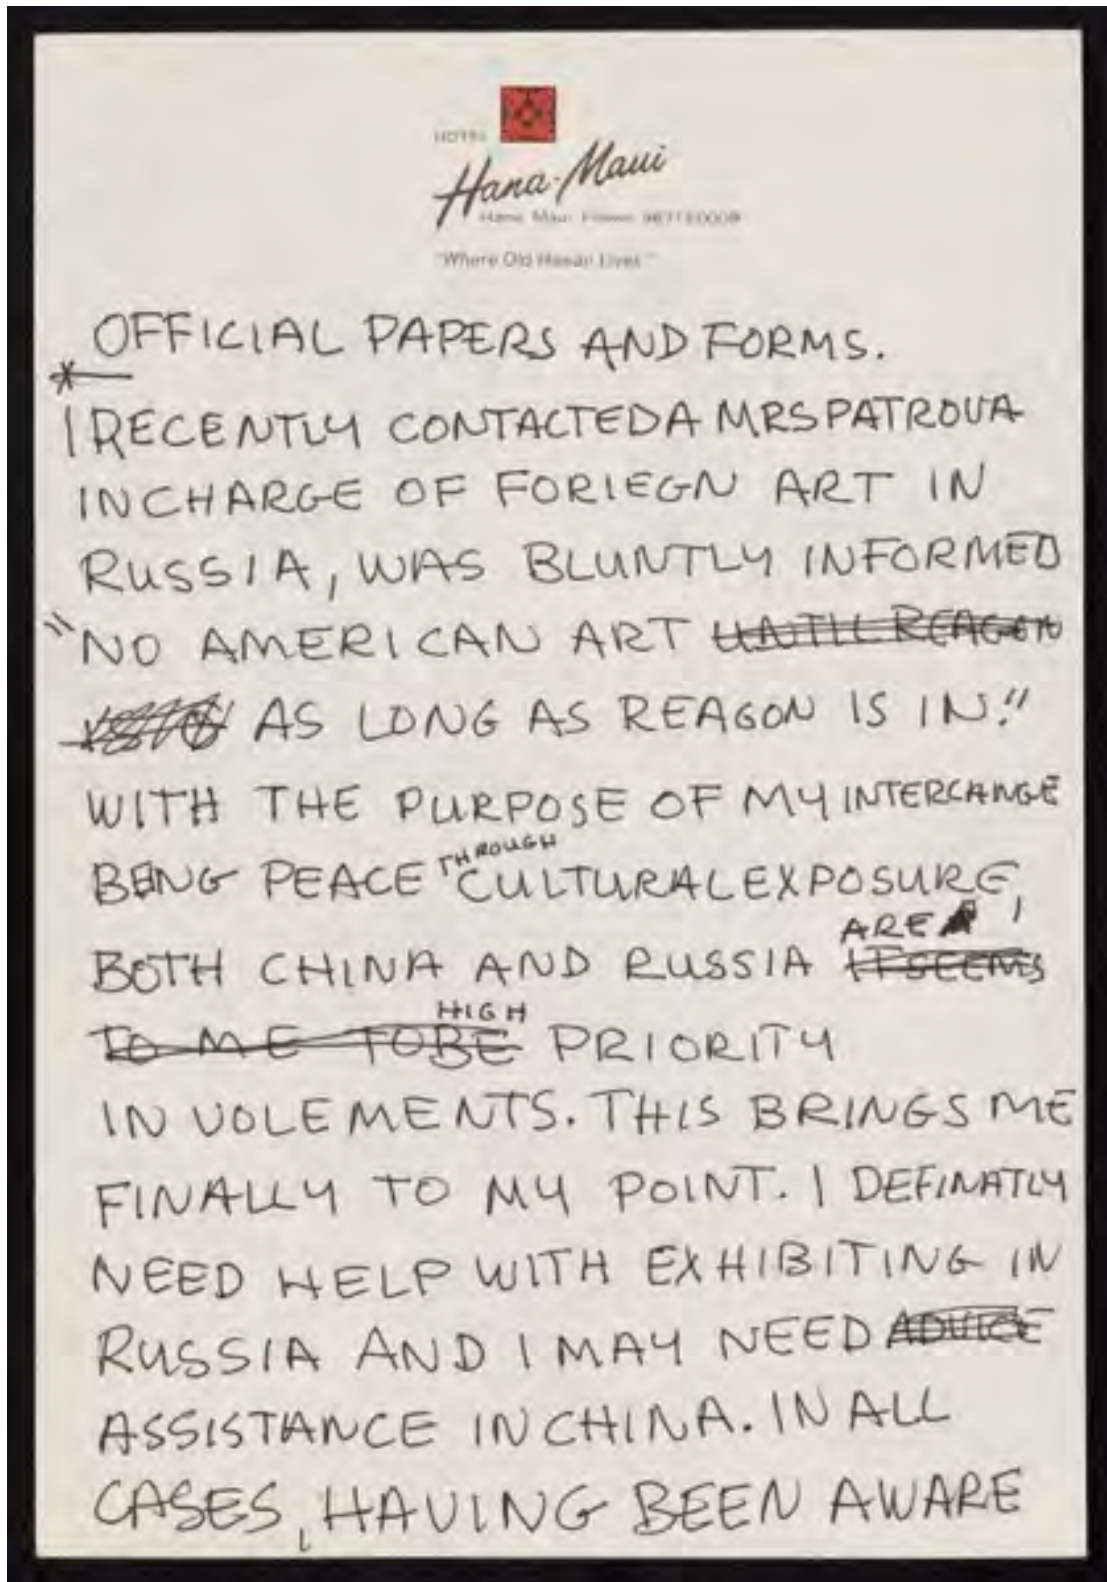 HOTEL
Hana-Maui
Hana, Maui, Hawaii
"Where Old Hawaii Lives"
OFFICIAL PAPERS AND FORMS.
*
I RECENTLY CONTACTED A MRS PATROVA
IN CHARGE OF FORIEGN ART IN
RUSSIA, WAS BLUNTLY INFORMED
"NO AMERICAN ART UNTIL REAGON
AS LONG AS REAGON IS IN."
WITH THE PURPOSE OF MY INTERCHANGE
BEING PEACE THROUGH CULTURAL EXPOSURE,
BOTH CHINA AND RUSSIA ARE IT SEEMS
TO ME TO BE HIGH PRIORITY
INVOLEMENTS. THIS BRINGS ME
FINALLY TO MY POINT. I DEFINATLY
NEED HELP WITH EXHIBITING IN
RUSSIA AND I MAY NEED ADVICE
ASSISTANCE IN CHINA. IN ALL
CASES, HAVING BEEN AWARE